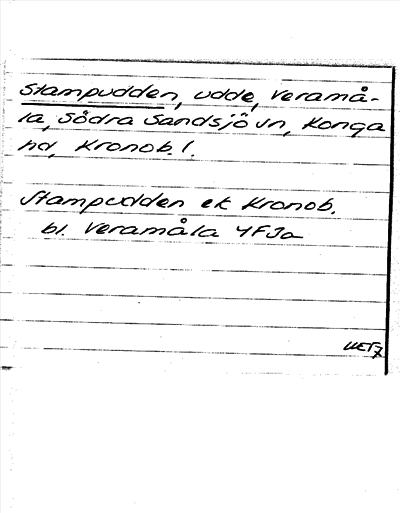 Stampudden, udde, Veramå-
la, Södra Sandsjö sn, Konga
hd, Kronob. l.
Stampudden ek Kronob.
bl. Veramåla 4F Ja